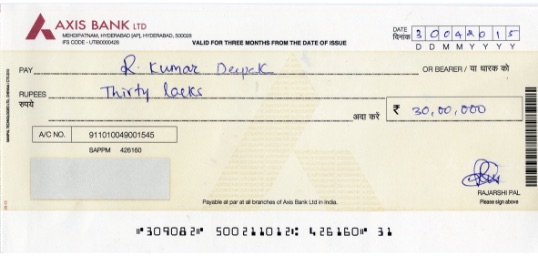 AXIS BANK LTD
MEHDIPATNAM, HYDERABAD [AP], HYDERABAD, 500028
IFS CODE - UTIB0000426
VALID FOR THREE MONTHS FROM THE DATE OF ISSUE
DATE
दिनांक
3 0 0 4 2 0 1 5
D D M M Y Y Y Y
PAY R. Kumar Deepak OR BEARER / या धारक को
RUPEES Thirty lacks
रुपये
अदा करें ₹ 30,00,000
A/C NO. 911010049001545
SAPPM 426160
RAJARSHI PAL
Payable at par at all branches of Axis Bank Ltd in India.
Please sign above
"309082" 500211012: 426160" 31